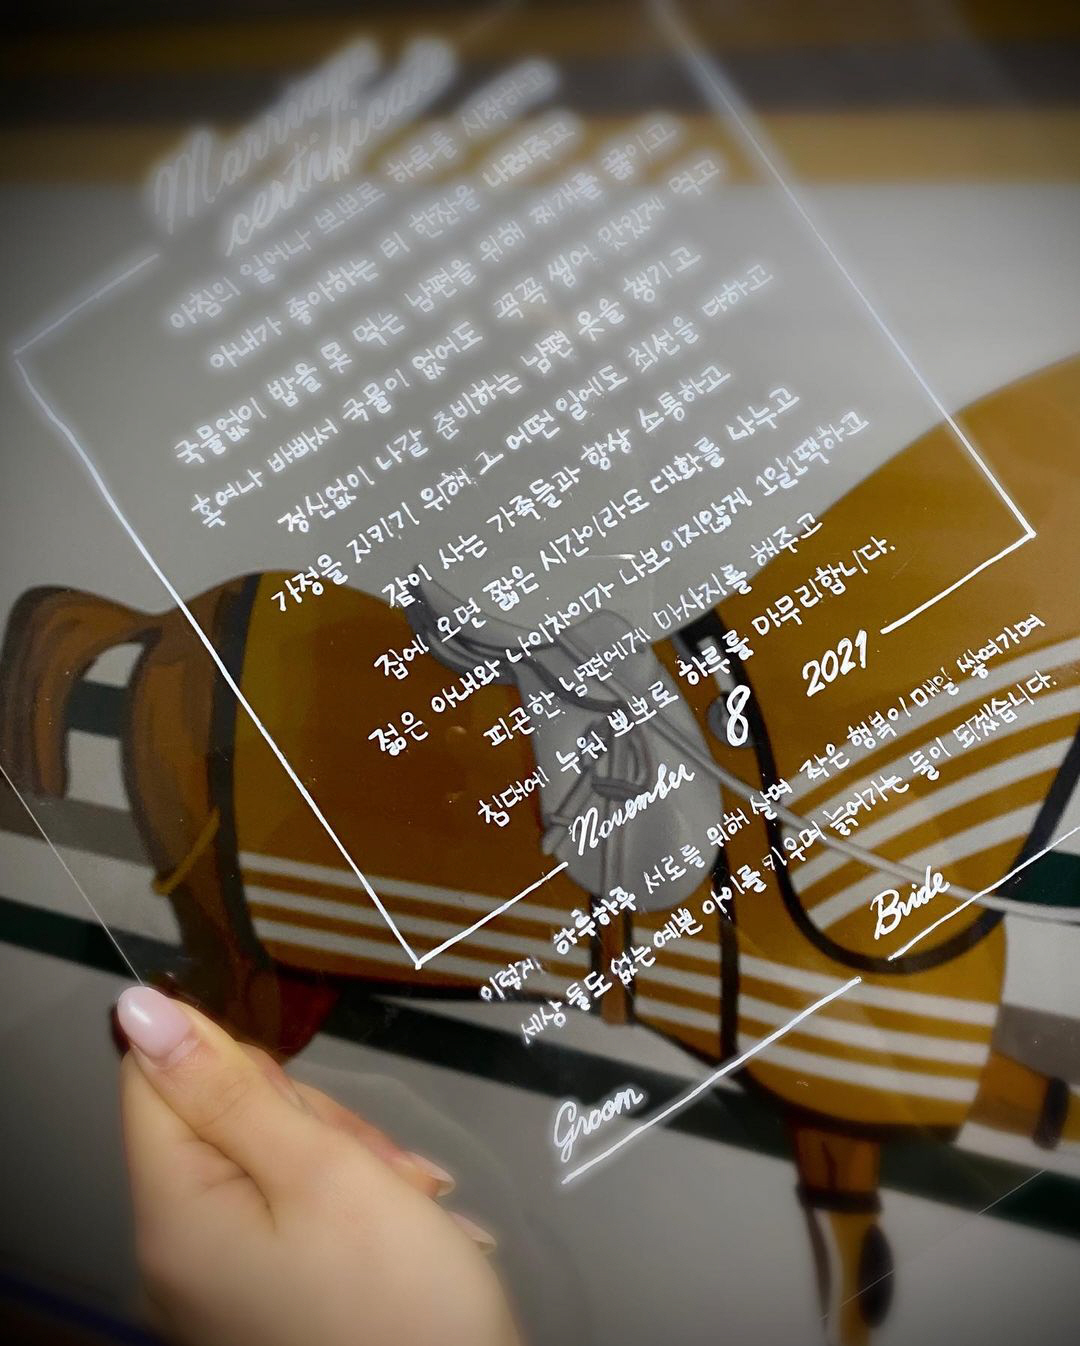 Marriage
certificate
아침의 일어나 뽀뽀로 하루를 시작하고
아내가 좋아하는 티 한잔을 내려주고
국물없이 밥을 못 먹는 남편을 위해 찌개를 끓이고
혹여나 바빠서 국물이 없어도 꼭꼭 씹어 맛있게 먹고
정신없이 나갈 준비하는 남편 옷을 챙기고
가정을 지키기 위해 그 어떤 일에도 최선을 다하고
같이 사는 가족들과 항상 소통하고
집에 오면 짧은 시간이라도 대화를 나누고
젊은 아내와 나이차이가 나보이지않게 1일1팩하고
피곤한 남편에게 마사지를 해주고
침대에 누워 뽀뽀로 하루를 마무리합니다.
November 8 2021
이렇게 하루하루 서로를 위해 살며 작은 행복이 매일 쌓여가며
세상 둘도 없는 예쁜 아이를 키우며 늙어가는 둘이 되겠습니다.
Groom Bride